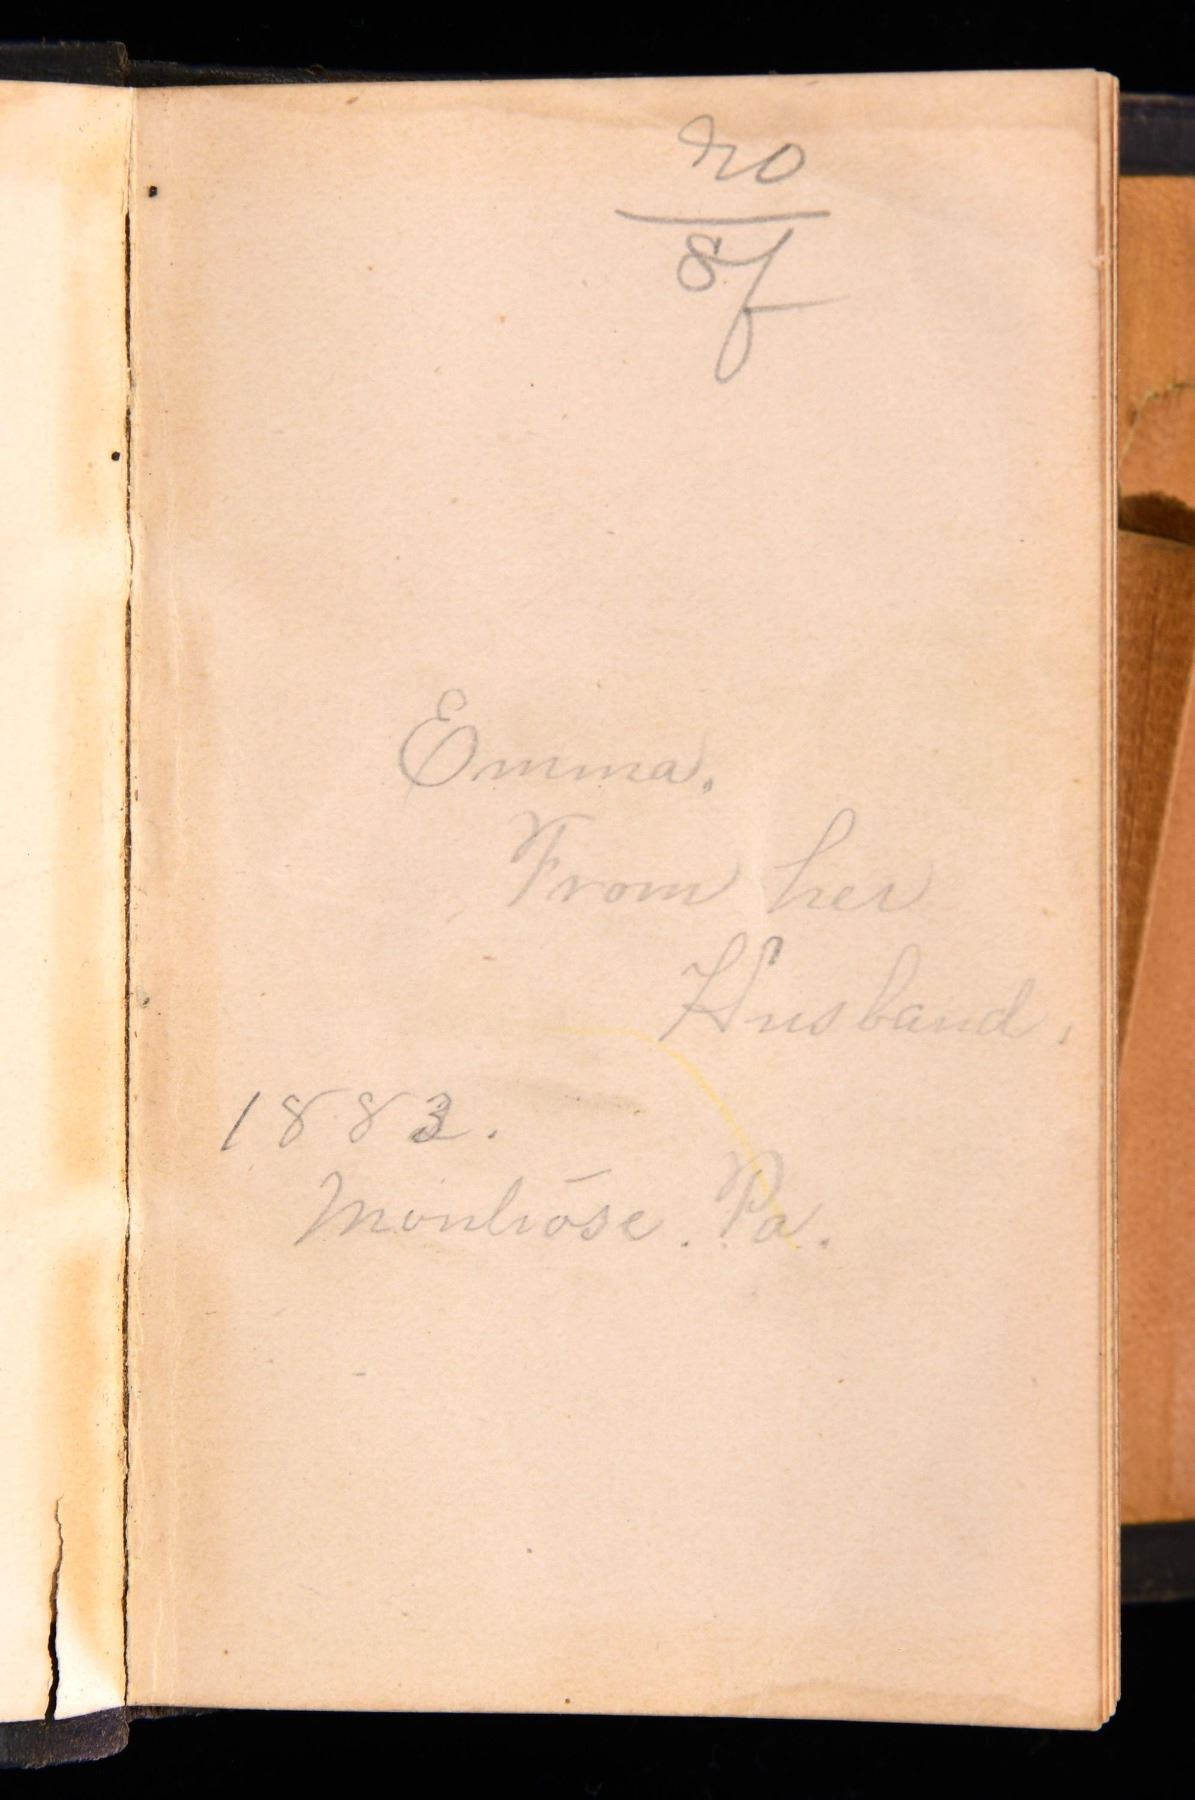 Emma.
From her
Husband.
1883.
Montrose. Pa.